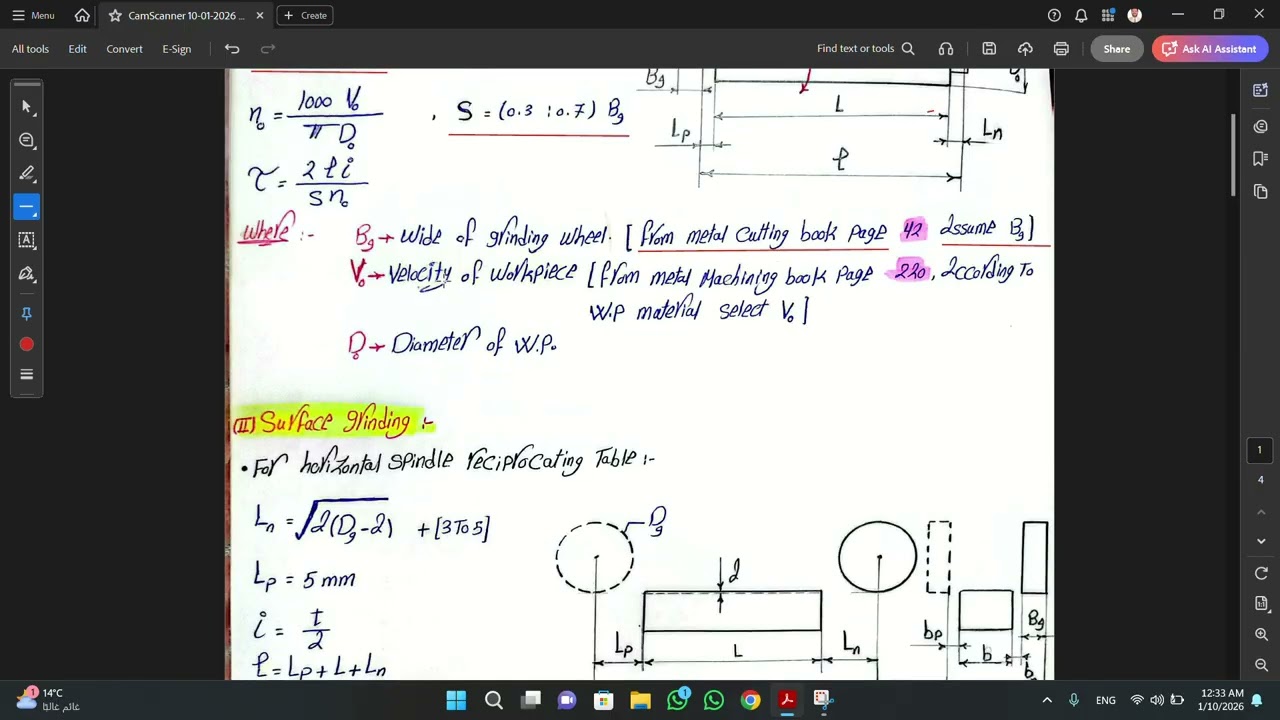 Menu
CamScanner 10-01-2026 ...
Create
All tools
Edit
Convert
E-Sign
Find text or tools
Share
Ask AI Assistant
n₀ = 1000 V₀ / π D₀
, S = (0.3 : 0.7) Bg
τ = 2 ℓ i / S n₀
Bg
L
Lp
Ln
ℓ
where :-
Bg → Wide of grinding wheel. [from metal cutting book page 42 assume Bg]
V₀ → Velocity of workpiece [from metal Machining book page 220, according To
W.P material select V₀]
D₀ → Diameter of W.P.
(II) Surface grinding :-
• For horizontal spindle reciprocating Table :-
Ln = √a(Dg - a) + [3 To 5]
Lp = 5 mm
i = t / a
ℓ = Lp + L + Ln
Dg
a
Lp
L
Ln
bp
b
Bg
1
4
1
14°C
غائم غالبًا
1
ENG
12:33 AM
1/10/2026